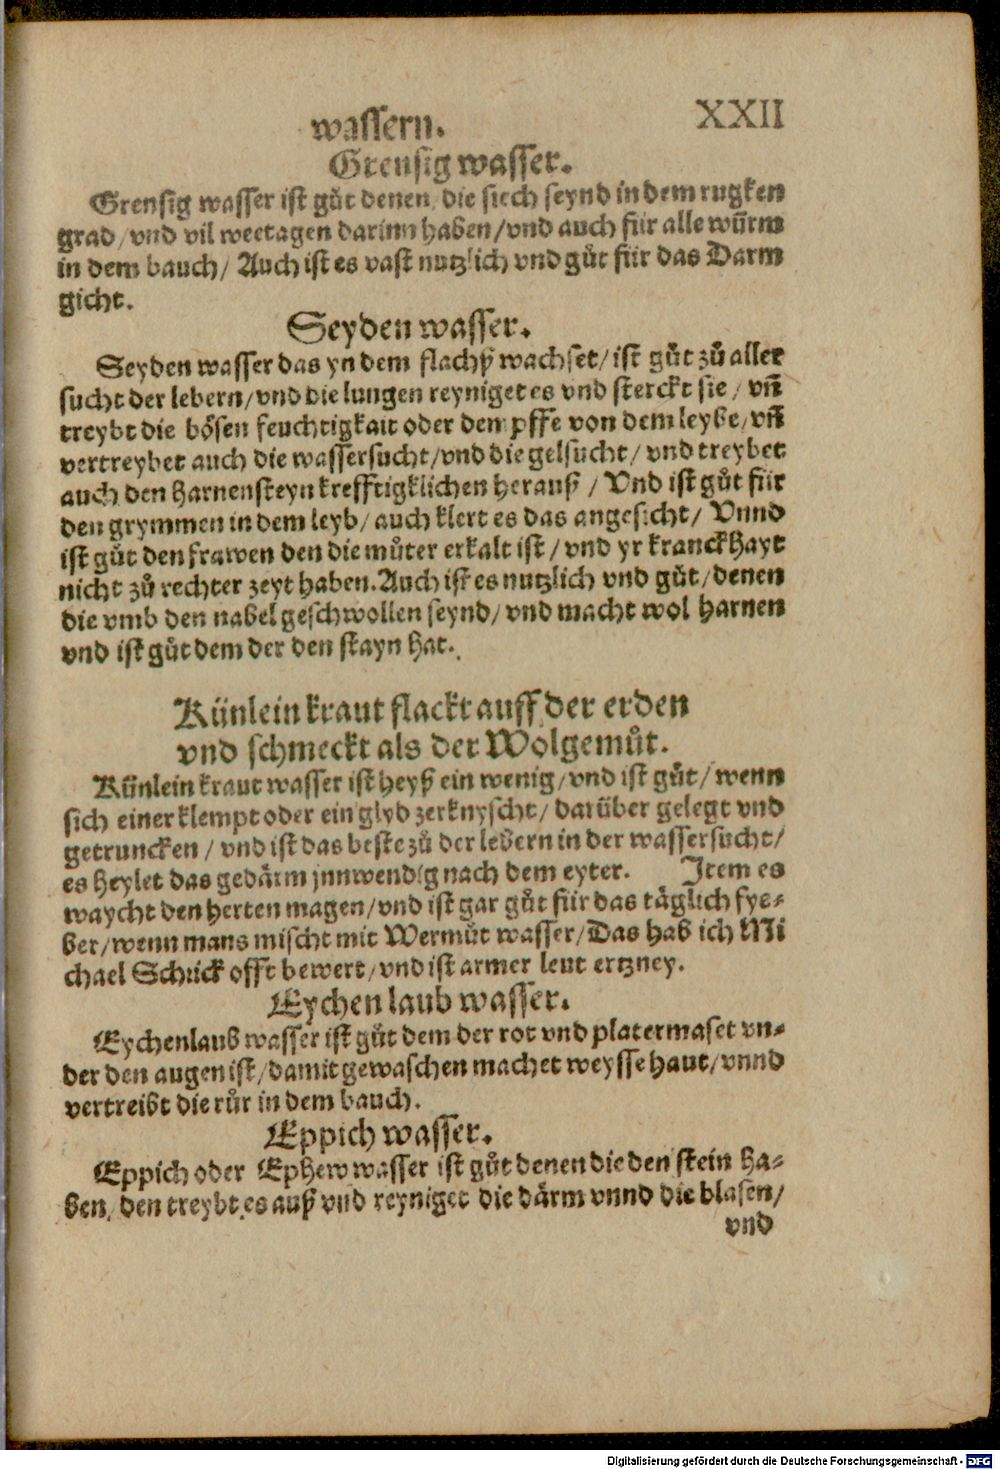 wassern. XXII
Grensig wasser.
Grensig wasser ist gůt denen, die siech seynd in dem rugken
grad/vnd vil weetagen darinn haben/vnd auch für alle würm
in dem bauch/ Auch ist es vast nutzlich vnd gůt für das Darm
gicht.
Seyden wasser.
Seyden wasser das yn dem flachß wachset/ist gůt zů aller
sucht der lebern/vnd die lungen reyniget es vnd sterckt sie/vñ
treybt die bösen feuchtigkait oder den pffe von dem leybe/vñ
vertreybet auch die wassersucht/vnd die gelsucht/vnd treybet
auch den harnensteyn krefftigklichen herauß/Vnd ist gůt für
den grymmen in dem leyb/auch klert es das angesicht/Vnnd
ist gůt den frawen den die můter erkalt ist/vnd yr kranckhayt
nicht zů rechter zeyt haben. Auch ist es nutzlich vnd gůt/denen
die vmb den nabel geschwollen seynd/vnd macht wol harnen
vnd ist gůt dem der den stayn hat.
Künlein kraut flackt auff der erden
vnd schmeckt als der Wolgemůt.
Künlein kraut wasser ist heyß ein wenig/vnd ist gůt/wenn
sich einer klempt oder ein glyd zerknyscht/darüber gelegt vnd
getruncken/vnd ist das beste zů der lebern in der wassersucht/
es heylet das gedärm jnnwendig nach dem eyter. Item es
waycht den herten magen/vnd ist gar gůt für das täglich fye-
ber/wenn mans mischt mit Wermůt wasser/Das hab ich Mi
chael Schrick offt bewert/vnd ist armer leut ertzney.
Eychen laub wasser.
Eychenlaub wasser ist gůt dem der rot vnd platermaset vn-
der den augen ist/damit gewaschen machet weysse haut/vnnd
vertreibt die růr in dem bauch.
Eppich wasser.
Eppich oder Ephew wasser ist gůt denen die den stein ha-
ben, den treybt es auß vnd reyniget die därm vnnd die blasen/
vnd
Digitalisierung gefördert durch die Deutsche Forschungsgemeinschaft - DFG